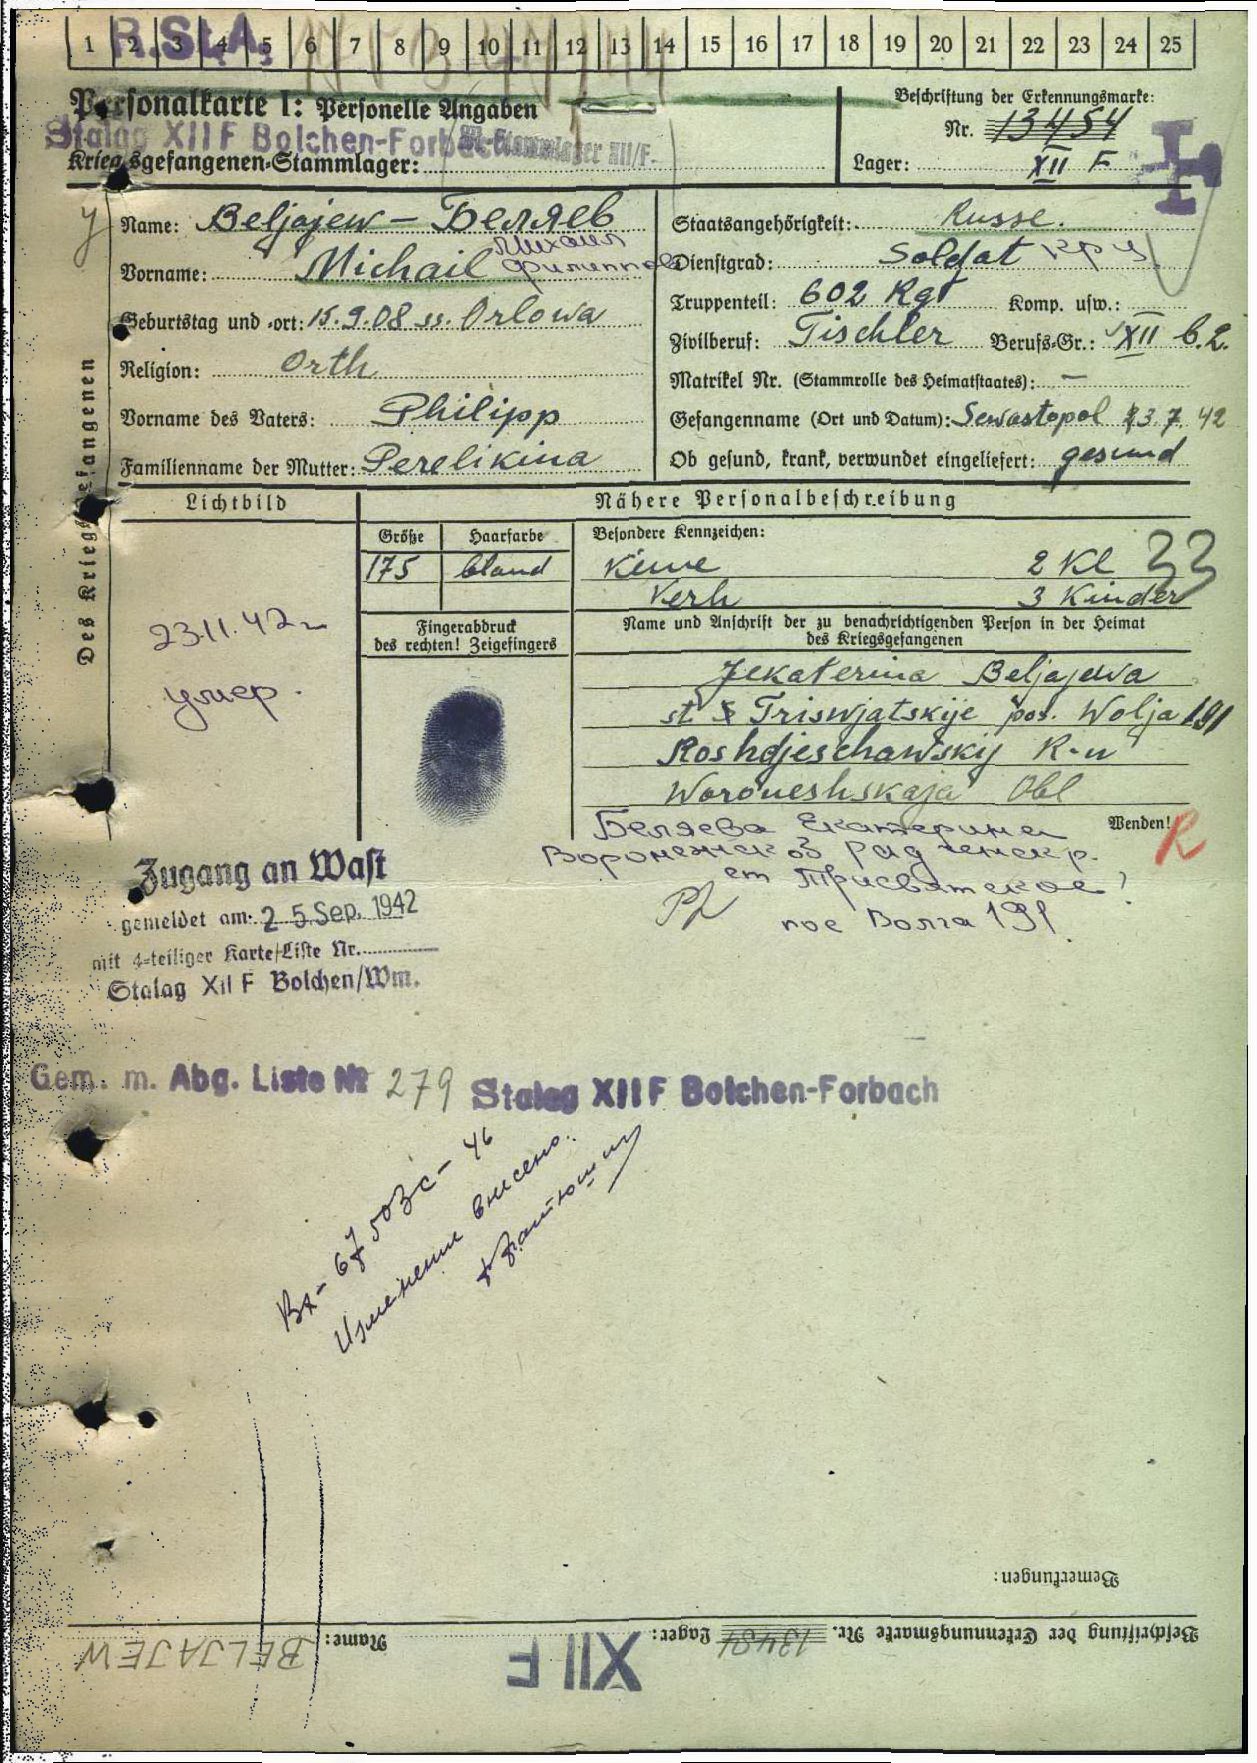 1 2 3 4 5 6 7 8 9 10 11 12 13 14 15 16 17 18 19 20 21 22 23 24 25
R.StA.
Personalkarte I: Personelle Angaben
Beschriftung der Erkennungsmarke:
Nr. 13454
Stalag XII F Bolchen-Forbach
M.-Stammlager XII/F.
Kriegsgefangenen-Stammlager:
Lager: XII F
Name: Beljajew – Беляев
Михаил
Vorname: Michail Филиппов
Geburtstag und -ort: 15.9.08 Orlowa
Religion: Orth
Vorname des Vaters: Philipp
Familienname der Mutter: Perelikina
Staatsangehörigkeit: Russe.
Dienstgrad: Soldat кр
Truppenteil: 602 Rgt Komp. usw.: —
Zivilberuf: Tischler Berufs-Gr.: XII b.2.
Matrikel Nr. (Stammrolle des Heimatstaates): —
Gefangenname (Ort und Datum): Sewastopol 3.7. 42
Ob gesund, krank, verwundet eingeliefert: gesund
Des Kriegsgefangenen
Lichtbild
Nähere Personalbeschreibung
Größe Haarfarbe Besondere Kennzeichen:
175 bland Keine 2 Kl 33
Verh 3 Kinder
Fingerabdruck
des rechten! Zeigefingers
Name und Anschrift der zu benachrichtigenden Person in der Heimat
des Kriegsgefangenen
23.11.42
умер.
Jekaterina Beljajewa
st Triswjatskije pos. Wolja 191
Roshdjeschawskij R-n
Woroneshskaja Obl
Wenden!
R
Беляева Екатерина
Воронежск об
ст Трисвятское
пос Волга 191
Zugang an Wast
gemeldet am: 25. Sep. 1942
mit 4-teiliger Karte/Liste Nr.
Stalag XII F Bolchen/Wm.
Gem. m. Abg. Liste № 279 Stalag XII F Bolchen-Forbach
Вх- 67503с- 46
Изменения внесено.
Bemerkungen:
Beschriftung der Erkennungsmarke Nr. 13454 Lager: XII F Name: BELJAJEW